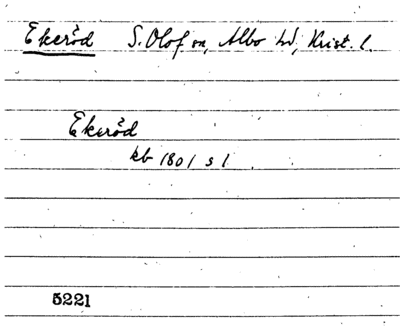 Ekeröd S. Olof sn, Albo hd, Krist. l.
Ekeröd
kb 1801 s 1
5221